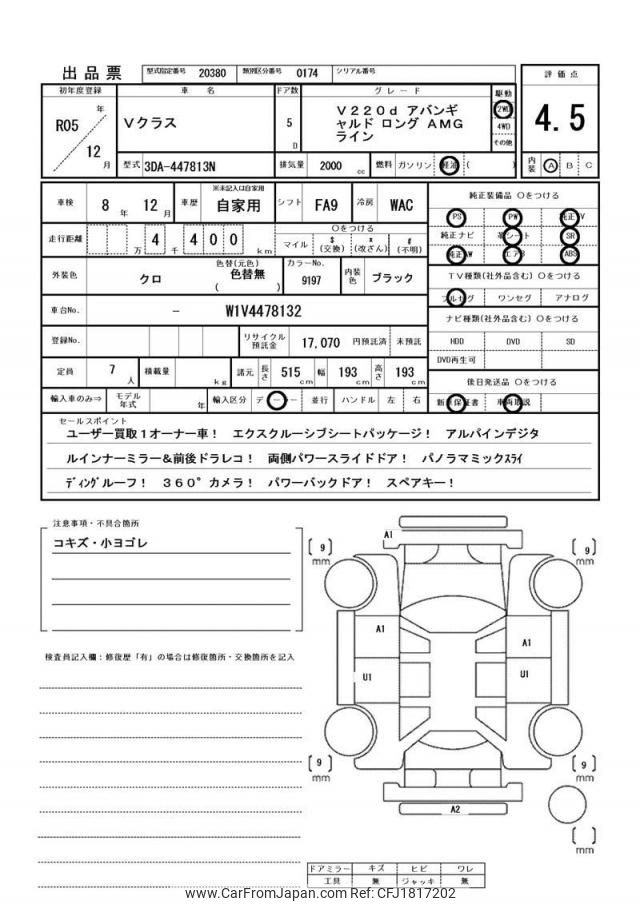 出品票
型式指定番号 20380 類別区分番号 0174 シリアル番号
評価点
4.5
内装 A B C
初年度登録 車名 ドア数 グレード 駆動
R05 年 12 月
Vクラス
5 D
V220d アバンギ
ャルド ロング AMG
ライン
2WD
4WD
その他
型式 3DA-447813N 排気量 2000 cc 燃料 ガソリン 軽油 ( )
車検 8 年 12 月 車歴 ※未記入は自家用 自家用 シフト FA9 冷房 WAC
走行距離 4 千 4 0 0 km
万
〇をつける
マイル $(交換) *(改ざん) #(不明)
外装色 クロ 色替(元色) 色替無 ( ) カラーNo. 9197 内装色 ブラック
車台No. - W1V4478132
登録No. リサイクル預託金 17,070 円預託済 未預託
定員 7 人 積載量 kg 諸元 長さ 515 cm 幅 193 cm 高さ 193 cm
輸入車のみ⇒ モデル年式 年 輸入区分 ディーラー 並行 ハンドル 左 右
純正装備品 〇をつける
PS PW 純正TV
純正ナビ 革シート SR
純正AW エアB ABS
TV種類(社外品含む) 〇をつける
フルセグ ワンセグ アナログ
ナビ種類(社外品含む) 〇をつける
HDD DVD SD
DVD再生可
後日発送品 〇をつける
新車保証書 車両取説
セールスポイント
ユーザー買取1オーナー車! エクスクルーシブシートパッケージ! アルパインデジタ
ルインナーミラー&前後ドラレコ! 両側パワースライドドア! パノラマミックスライ
ディングルーフ! 360°カメラ! パワーバックドア! スペアキー!
注意事項・不具合箇所
コキズ・小ヨゴレ
検査員記入欄:修復歴「有」の場合は修復箇所・交換箇所を記入
A1
9 mm
9 mm
A1
A1
U1
U1
9 mm
9 mm
A2
mm
ドアミラー キズ ヒビ ワレ
工具 無 ジャッキ 無
www.CarFromJapan.com Ref: CFJ1817202